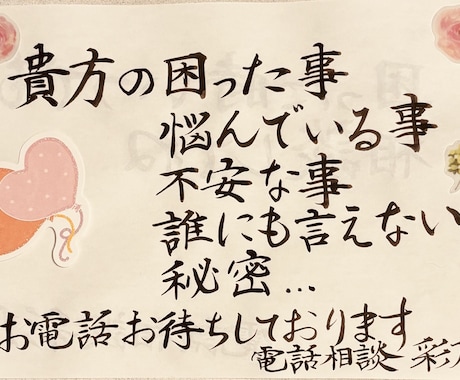 貴方の困った事
悩んでいる事
不安な事
誰にも言えない
秘密…
お電話お待ちしております
電話相談 彩